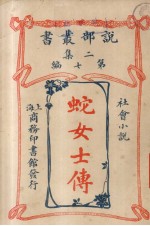 說部叢書
二集
第七編
社會小說
蛇女士傳
上海
商務印書館發行